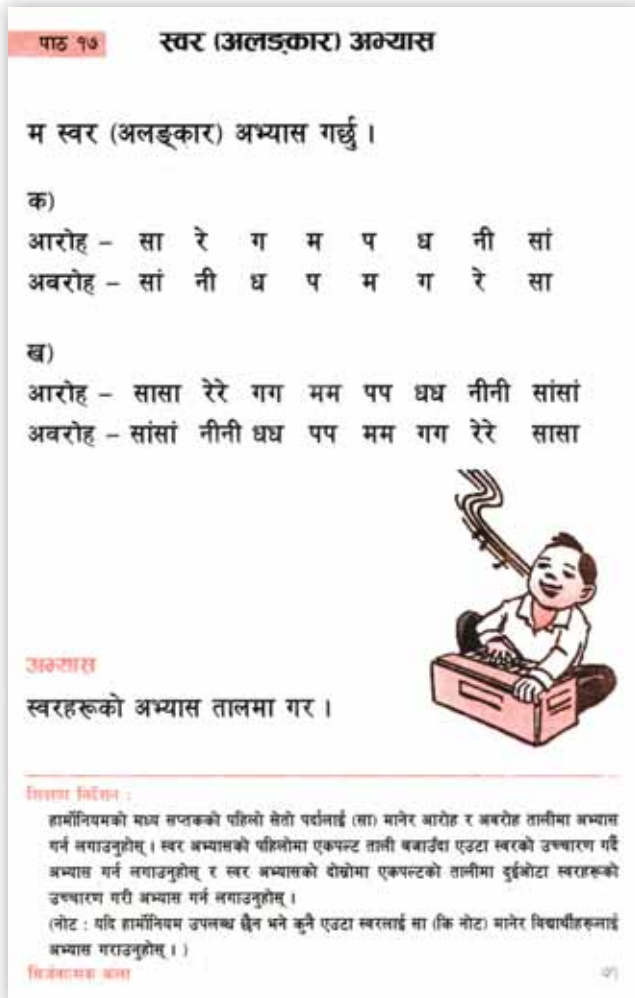 पाठ १७
स्वर (अलङ्कार) अभ्यास
म स्वर (अलङ्कार) अभ्यास गर्छु ।
क)
आरोह – सा रे ग म प ध नी सां
अवरोह – सां नी ध प म ग रे सा
ख)
आरोह – सासा रेरे गग मम पप धध नीनी सांसां
अवरोह – सांसां नीनी धध पप मम गग रेरे सासा
अभ्यास
स्वरहरूको अभ्यास तालमा गर ।
शिक्षण निर्देशन :
हार्मोनियमको मध्य सप्तकको पहिलो सेतो पर्दालाई (सा) मानेर आरोह र अवरोह तालीमा अभ्यास
गर्न लगाउनुहोस् । स्वर अभ्यासको पहिलोमा एकपल्ट ताली बजाउँदा एउटा स्वरको उच्चारण गर्दै
अभ्यास गर्न लगाउनुहोस् र स्वर अभ्यासको दोस्रोमा एकपल्टको तालीमा दुईओटा स्वरहरूको
उच्चारण गरी अभ्यास गर्न लगाउनुहोस् ।
(नोट : यदि हार्मोनियम उपलब्ध छैन भने कुनै एउटा स्वरलाई सा (कि नोट) मानेर विद्यार्थीहरूलाई
अभ्यास गराउनुहोस् । )
सिर्जनात्मक कला